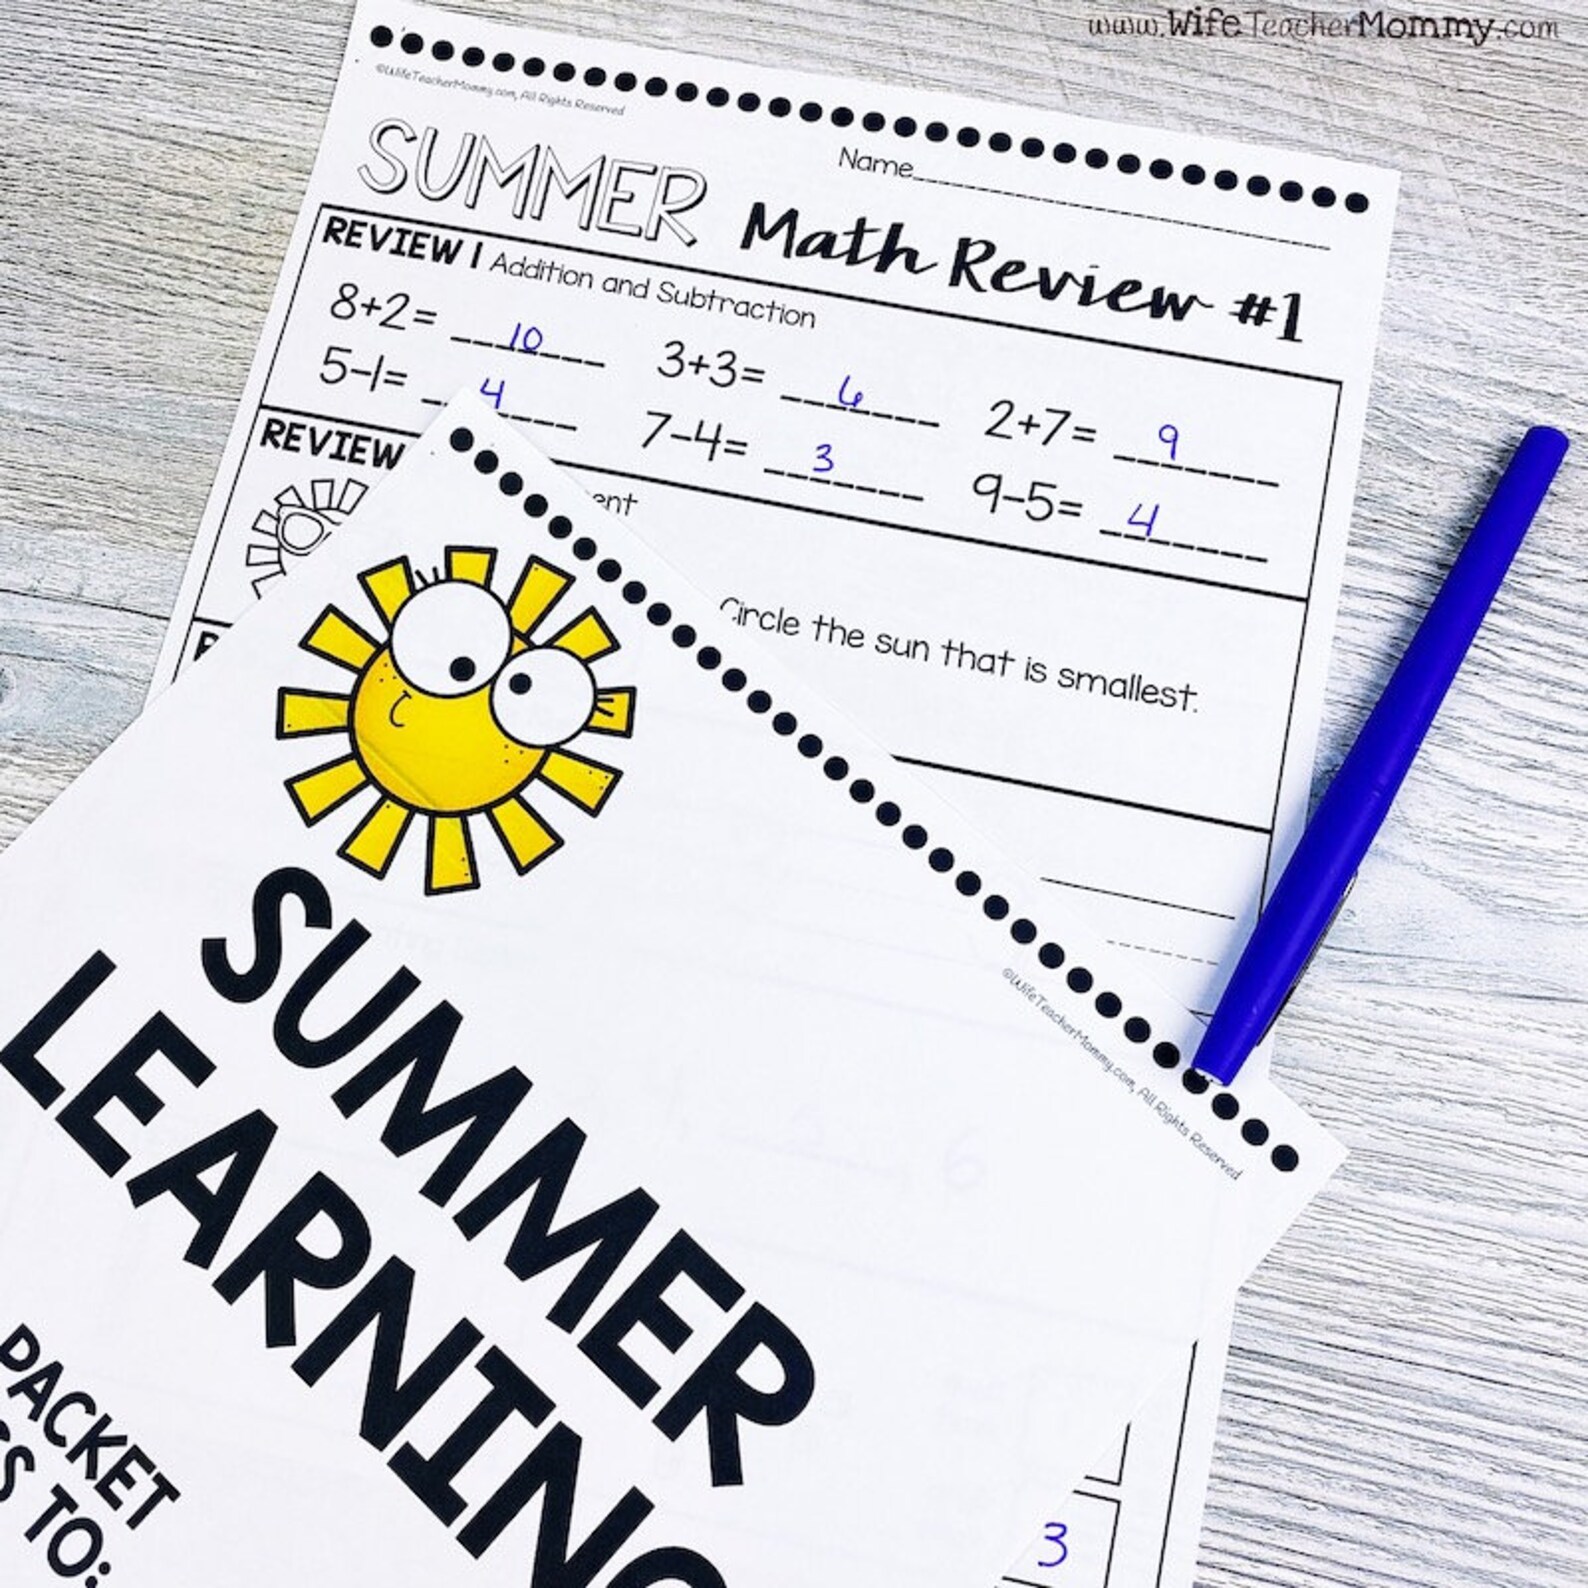 www.WifeTeacherMommy.com
©WifeTeacherMommy.com, All Rights Reserved
Name
SUMMER Math Review #1
REVIEW | Addition and Subtraction
8+2= 10 3+3= 6 2+7= 9
5-1= 4 7-4= 3 9-5= 4
REVIEW
Circle the sun that is smallest.
©WifeTeacherMommy.com, All Rights Reserved
SUMMER
LEARNING
PACKET
TO:
3